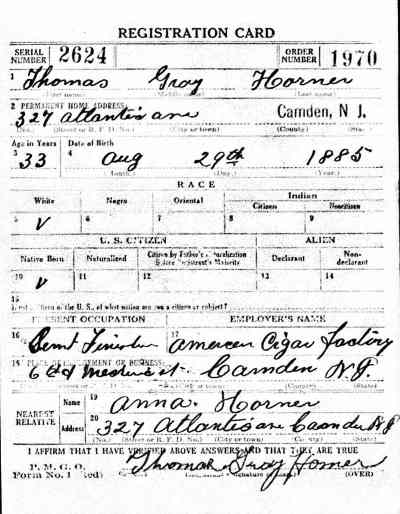 REGISTRATION CARD
SERIAL NUMBER 2624 ORDER NUMBER 1970
1 Thomas Gray Horner
(First name) (Middle name) (Last name)
2 PERMANENT HOME ADDRESS:
327 atlantis ave Camden, N J.
(No.) (Street or R. F. D. No.) (City or town) (County) (State)
Age in Years Date of Birth
3 33 4 Aug 29th 1885
(Month.) (Day.) (Year.)
RACE
White Negro Oriental Indian
Citizen Noncitizen
5 V 6 7 8 9
U. S. CITIZEN ALIEN
Native Born Naturalized Citizen by Father's Naturalization Before Registrant's Majority Declarant Non-declarant
10 V 11 12 13 14
15
of the U. S., of what nation are you a citizen or subject?
PRESENT OCCUPATION EMPLOYER'S NAME
16 17 American Cigar factory
PLACE OF EMPLOYMENT OR BUSINESS:
6th & st. Camden N.J.
(Street or R. F. D. No.) (City or town) (County) (State)
NEAREST RELATIVE Name 19 Anna Horner
Address 20 327 Atlantis ave Camden N J
(No.) (Street or R. F. D. No.) (City or town) (County) (State)
I AFFIRM THAT I HAVE VERIFIED ABOVE ANSWERS AND THAT THEY ARE TRUE
P. M. G. O.
Form No. 1 (Red) Thomas Gray Horner
(OVER)